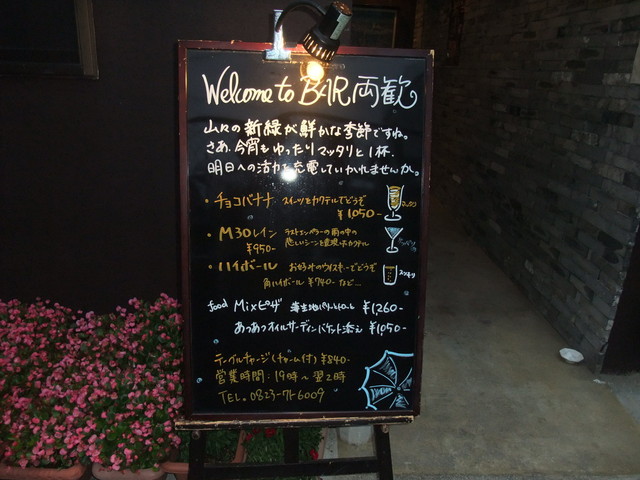 Welcome to BAR 両歓
山々の新緑が鮮かな季節ですね。
さあ、今宵もゆったりマッタリと1杯.
明日への活力を充電していかれませんか。
・チョコバナナ スイーツをカクテルでどうぞ
¥1050-
・M30レイン ラストエンペラーの雨の中の
¥950-
・ハイボール お好みのウイスキーでどうぞ
スッキリ
角ハイボール ¥740- など…
food Mixピザ ¥1260-
あつあつオイルサーディン バケット添え ¥1050-
テーブルチャージ(チャーム付) ¥840-
営業時間:19時~翌2時
TEL。0823-71-6009